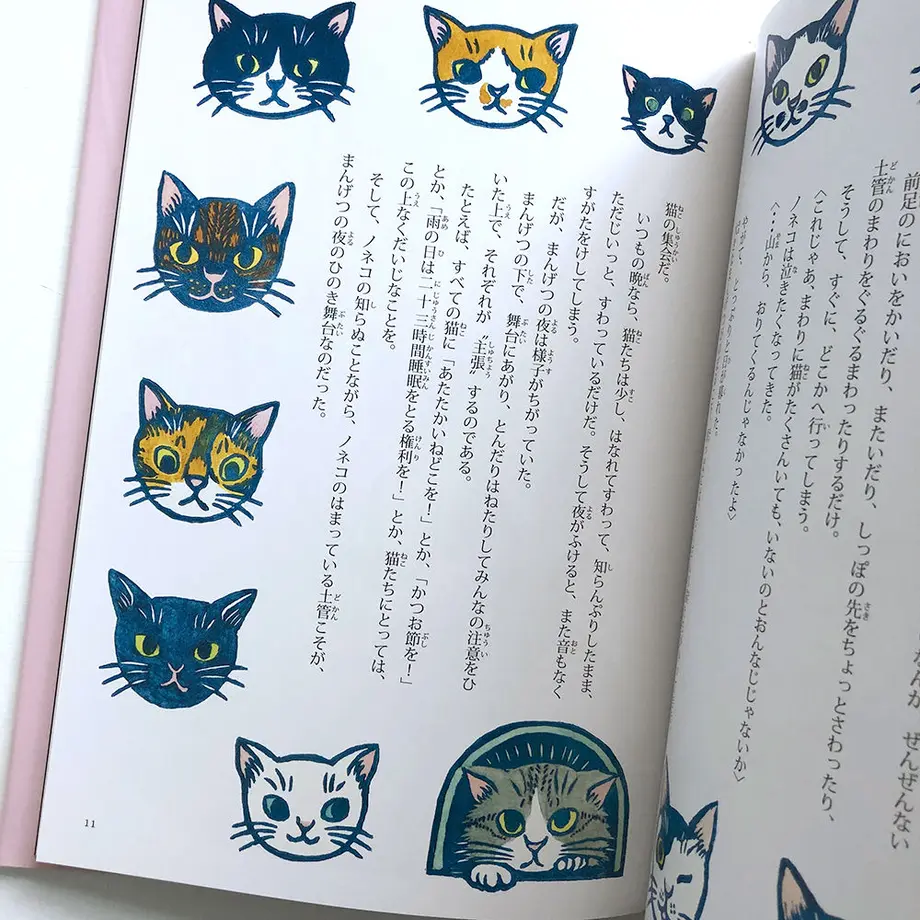 なんか ぜんぜんない
前足のにおいをかいだり、またいだり、しっぽの先をちょっとさわったり、
土管のまわりをぐるぐるまわったりするだけ。
そうして、すぐに、どこかへ行ってしまう。
〈これじゃあ、まわりに猫がたくさんいても、いないのとおんなじじゃないか〉
ノネコは泣きたくなってきた。
〈・・山から、おりてくるんじゃなかったよ〉
やがて、とっぷりと日が暮れた。
猫の集会だ。
いつもの晩なら、猫たちは少し、はなれてすわって、知らんぷりしたまま、
ただじいっと、すわっているだけだ。そうして夜がふけると、また音もなく
すがたをけしてしまう。
だが、まんげつの夜は様子がちがっていた。
まんげつの下で、舞台にあがり、とんだりはねたりしてみんなの注意をひ
いた上で、それぞれが〝主張〟するのである。
たとえば、すべての猫に「あたたかいねどこを！」とか、「かつお節を！」
とか、「雨の日は二十三時間睡眠をとる権利を！」とか、猫たちにとっては、
この上なくだいじなことを。
そして、ノネコの知らぬことながら、ノネコのはまっている土管こそが、
まんげつの夜のひのき舞台なのだった。
11